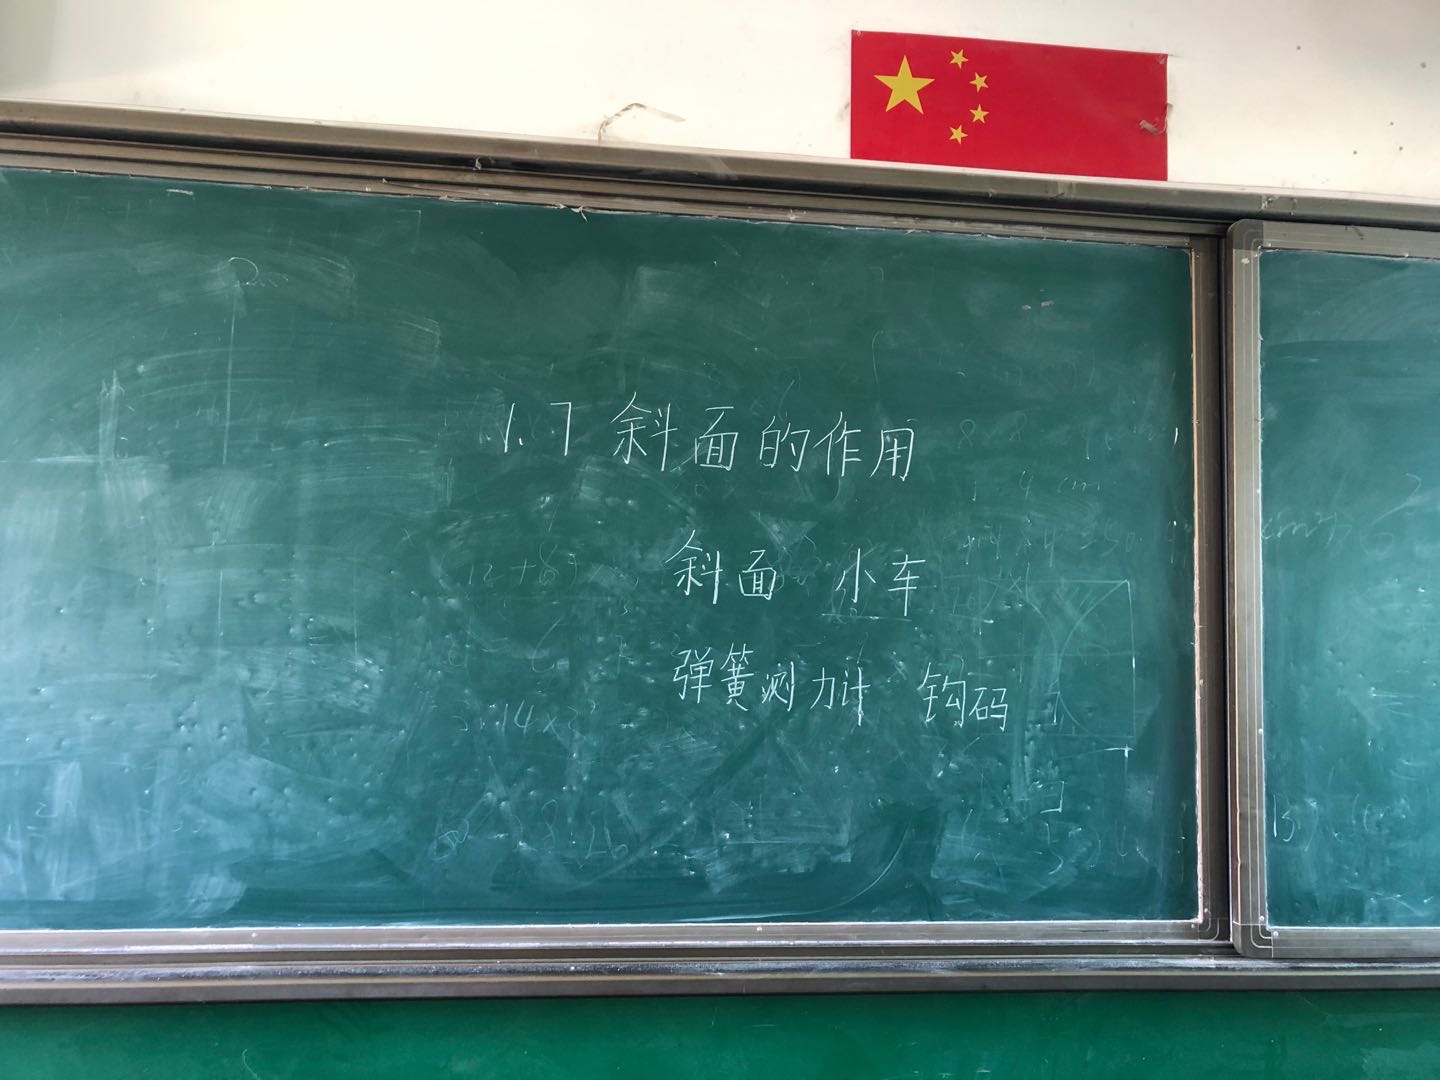 1.7 斜面的作用
斜面 小车
弹簧测力计 钩码